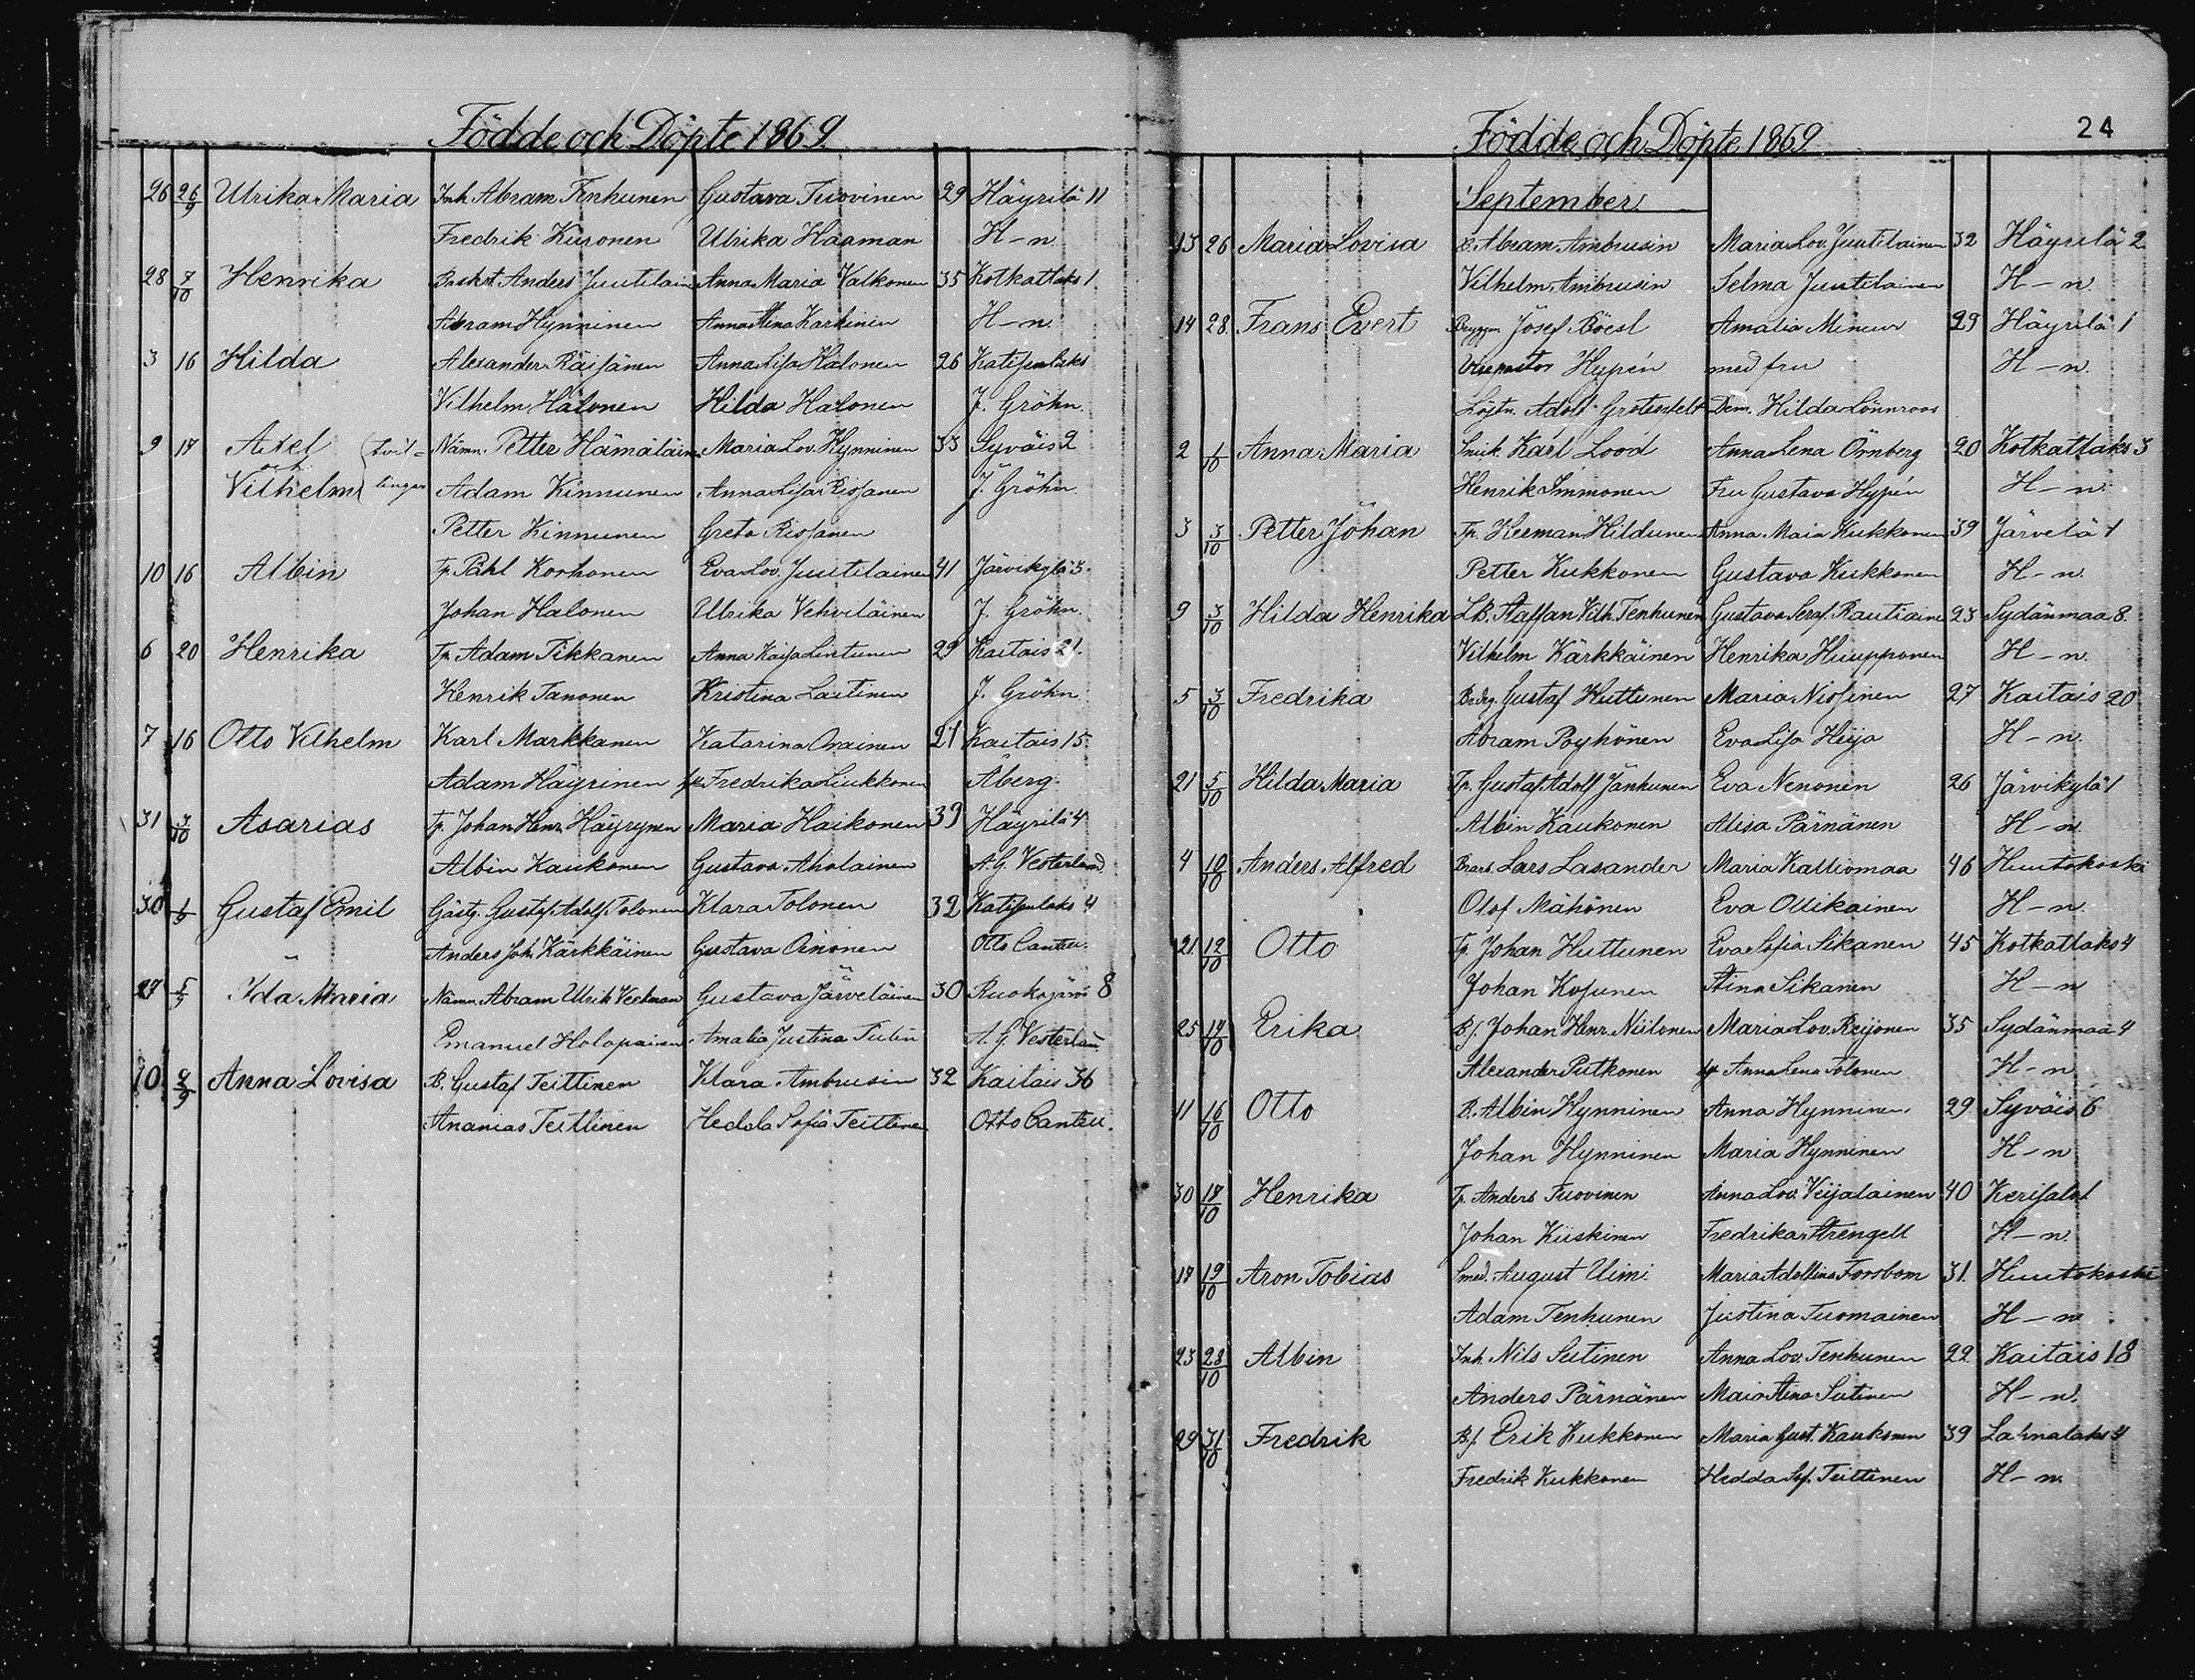 Födde och Döpte 1869
26 26/9 Ulrika Maria Inh. Abram Tenhunen Gustava Tuovinen 29 Häyrilä 11
Fredrik Kuronen Ulrika Haaman H-n.
28 7/10 Henrika Anders Juutilain Anna Maria Valkonen 35 Kotkatlaks 1.
Abram Hynninen Anna Stina Karkinen H-n.
3 16 Hilda Alexander Räisänen Anna Lisa Halonen 26 Katisenlaks
Vilhelm Halonen Hilda Halonen J. Gröhn.
9 17 Axel (tvil- Nämn. Petter Hämäläin Maria Lov. Hynninen 33 Syväis 2
och
Vilhelm lingar Adam Kinnunen Anna Lisa Rissanen J. Gröhn.
Petter Kinnunen Greta Rissanen
10 16 Albin Tp. Påhl Korhonen Eva Lov. Juutilainen 41 Järvikylä 3.
Johan Halonen Ulrika Vehviläinen J. Gröhn.
6 20 Henrika Tp. Adam Tikkanen Anna Kaisa Lintunen 29 Kaitais 21.
Henrik Tanonen Kristina Laitinen J. Gröhn
7 16 Otto Vilhelm Karl Markkanen Katarina 21 Kaitais 15.
Adam Häyrinen Fredrika Liukkonen Åberg.
31 3/10 Asarias Tp. Johan Henr. Häyrynen Maria Haikonen 39 Häyrilä 4
Albin Kaukonen Gustava Aholainen A. G. Vesterlund
30 1/9 Gustaf Emil Gästg. Gustaf Adolf Tolonen Klara Tolonen 32 Katisenlaks 4
Anders Joh. Kärkkäinen Gustava Ainonen Otto Cantzu.
27 5/9 Ida Maria Nämn. Abram Ulrik Veelman Gustava Järveläinen 30 Ruokojärvi 8
Emanuel Holopainen Amalia Justina A. G. Vesterlun
10 8/9 Anna Lovisa B. Gustaf Teittinen Klara Ambrusin 32 Kaitais 36
Ananias Teittinen Hedda Sofia Teittinen Otto Cantzu.
Födde och Döpte 1869 24
September.
13 26 Maria Lovisa B. Abram Ambrusin Maria Lov. Juutilainen 32 Häyrilä 2
Vilhelm Ambrusin Selma Juutilainen H-n.
14 28 Frans Evert Josef Böesl Amalia Mineur 29 Häyrilä 1
Hypén med fru H-n.
Löjtn. Adolf Grotenfelt Dem. Hilda Lönnroos
2 1/10 Anna Maria Karl Lood Anna Lena Örnberg 20 Kotkatlaks 3
Henrik Immonen Fru Gustava Hypén H-n.
3 3/10 Petter Johan Tp. Herman Hildunen Anna Maia Kukkonen 39 Järvelä 1
Petter Kukkonen Gustava Kukkonen H-n.
9 3/10 Hilda Henrika L.B. Staffan Vilh. Tenhunen Gustava Seraf. Rautiaine 23 Sydänmaa 8.
Vilhelm Kärkkäinen Henrika Huupponen H-n.
5 3/10 Fredrika Gustaf Huttunen Maria Nissinen 27 Kaitais 20
Abram Pöyhönen Eva Lisa Heijo H-n.
21 5/10 Hilda Maria Tp. Gustaf Adolf Janhunen Eva Nenonen 26 Järvikylä 1
Albin Kaukonen Alisa Pärnänen H-n.
4 10/10 Anders Alfred Lars Lasander Maria Kalliomaa 46 Huutokoski
Olof Mähönen Eva Ollikainen H-n.
21. 12/10 Otto Tp. Johan Huttunen Eva Sofia Sikanen 45 Kotkatlaks 4
Johan Kosunen Stina Sikanen H-n
25 14/10 Erika B.f. Johan Henr. Niilonen Maria Lov. Reijonen 35 Sydänmaa 4
Alexander Putkonen Anna Lena Tolonen H-n
11 16/10 Otto B. Albin Hynninen Anna Hynninen 29 Syväis 6
Johan Hynninen Maria Hynninen H-n
30 17/10 Henrika Tp. Anders Tuovinen Anna Lov. Veijalainen 40 Kerisalo 1
Johan Kiiskinen Fredrika Strengell H-n.
17 19/10 Aron Tobias Smed. August Uimi Maria Adolfina Forsbom 31. Huutokoski
Adam Tenhunen Justina Tuomainen H-n
23 28/10 Albin Inh. Nils Sutinen Anna Lov. Tenhunen 22 Kaitais 18
Anders Pärnänen Maia Stina Sutinen H-n.
29 31/10 Fredrik B.f. Erik Kukkonen Maria Gust. Kaukonen 39 Lahnalaks 4
Fredrik Kukkonen Hedda Sof. Teittinen H-n.